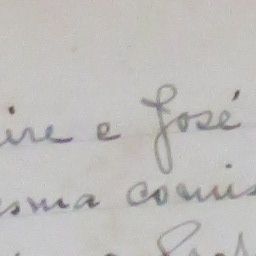 ire e José
esma comis